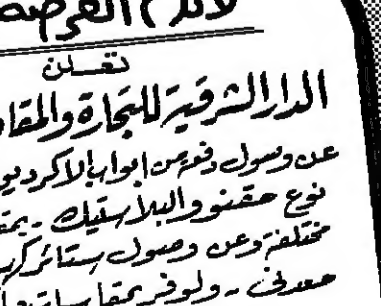 الفرصة
تعلن
الدار الشرقية للتجارة والمقا
عن وصول دفعة من ابواب الاكرديو
نوع حقنو والبلاستيك - بمقـ
مختلفة وعن وصول ستائر كهر
معدني - ولوفر بمقاسات